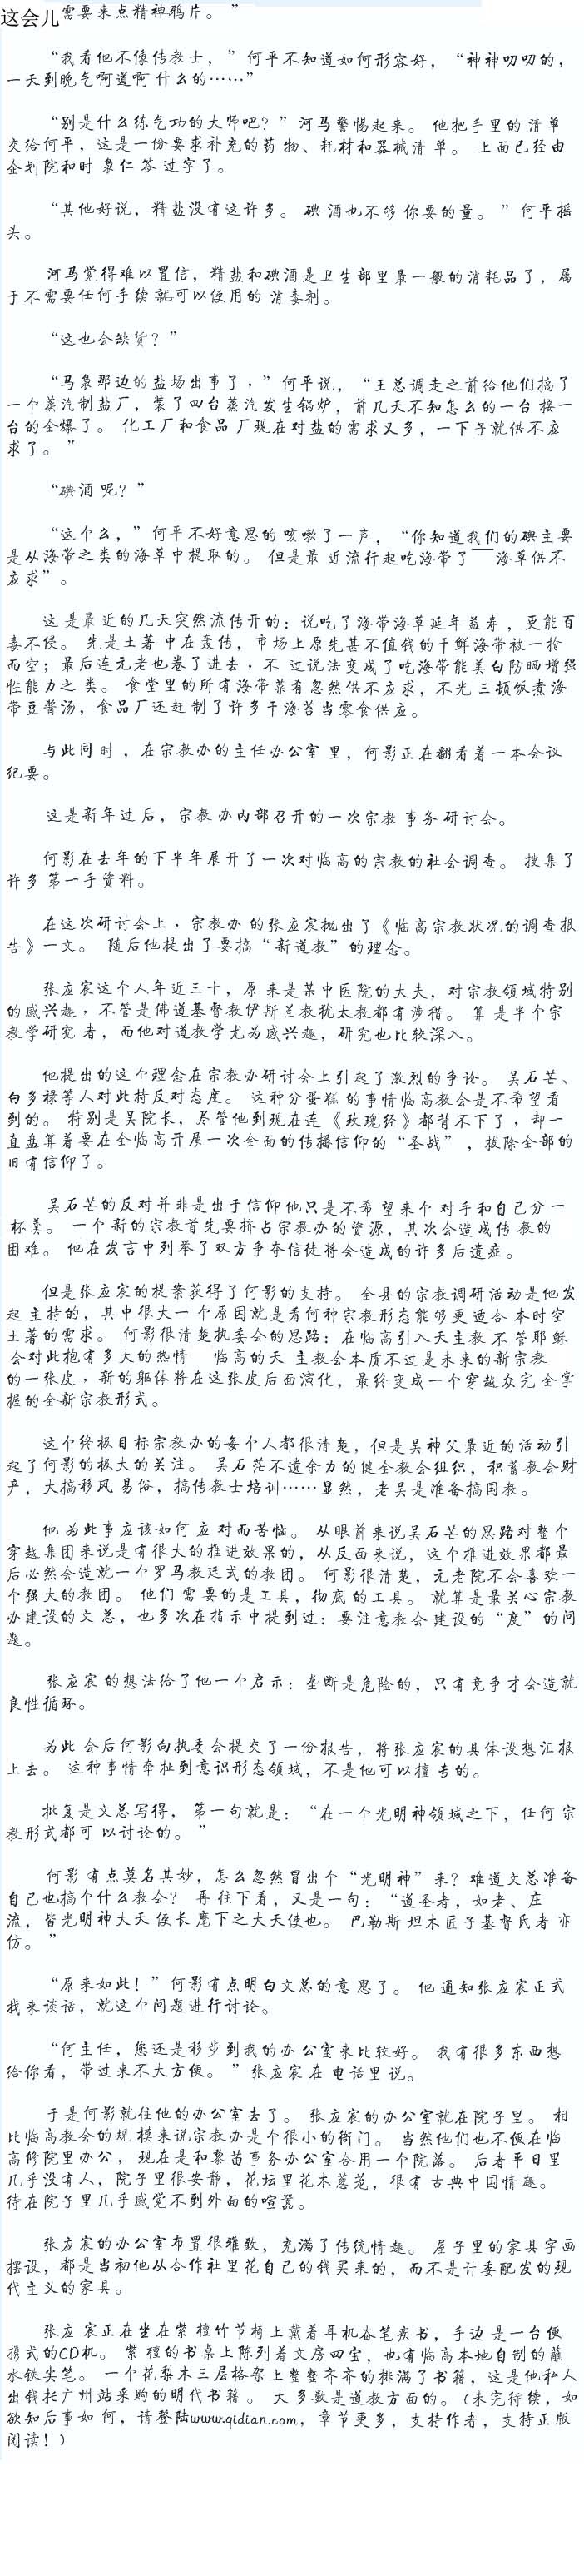 这会儿需要来点精神鸦片。”
“我看他不像传教士，”何平不知道如何形容好，“神神叨叨的，
一天到晚气啊道啊什么的……”
“别是什么练气功的大师吧？”河马警惕起来。他把手里的清单
交给何平，这是一份要求补充的药物、耗材和器械清单。上面已经由
企划院和时袅仁签过字了。
“其他好说，精盐没有这许多。碘酒也不够你要的量。”何平摇
头。
河马觉得难以置信，精盐和碘酒是卫生部里最一般的消耗品了，属
于不需要任何手续就可以使用的消毒剂。
“这也会缺货？”
“马袅那边的盐场出事了，”何平说，“王总调走之前给他们搞了
一个蒸汽制盐厂，装了四台蒸汽发生锅炉，前几天不知怎么的一台接一
台的全爆了。化工厂和食品厂现在对盐的需求又多，一下子就供不应
求了。”
“碘酒呢？”
“这个么，”何平不好意思的咳嗽了一声，“你知道我们的碘主要
是从海带之类的海草中提取的。但是最近流行起吃海带了――海草供不
应求”。
这是最近的几天突然流传开的：说吃了海带海草延年益寿，更能百
毒不侵。先是土著中在轰传，市场上原先甚不值钱的干鲜海带被一抢
而空；最后连元老也卷了进去，不过说法变成了吃海带能美白防晒增强
性能力之类。食堂里的所有海带菜肴忽然供不应求，不光三顿饭煮海
带豆酱汤，食品厂还赶制了许多干海苔当零食供应。
与此同时，在宗教办的主任办公室里，何影正在翻看着一本会议
纪要。
这是新年过后，宗教办内部召开的一次宗教事务研讨会。
何影在去年的下半年展开了一次对临高的宗教的社会调查。搜集了
许多第一手资料。
在这次研讨会上，宗教办的张应宸抛出了《临高宗教状况的调查报
告》一文。随后他提出了要搞“新道教”的理念。
张应宸这个人年近三十，原来是某中医院的大夫，对宗教领域特别
的感兴趣，不管是佛道基督教伊斯兰教犹太教都有涉猎。算是半个宗
教学研究者，而他对道教学尤为感兴趣，研究也比较深入。
他提出的这个理念在宗教办研讨会上引起了激烈的争论。吴石芒、
白多禄等人对此持反对态度。这种分蛋糕的事情临高教会是不希望看
到的。特别是吴院长，尽管他到现在连《玫瑰经》都背不下了，却一
直盘算着要在全临高开展一次全面的传播信仰的“圣战”，拔除全部的
旧有信仰了。
吴石芒的反对并非是出于信仰他只是不希望来个对手和自己分一
杯羹。一个新的宗教首先要挤占宗教办的资源，其次会造成传教的
困难。他在发言中列举了双方争夺信徒将会造成的许多后遗症。
但是张应宸的提案获得了何影的支持。全县的宗教调研活动是他发
起主持的，其中很大一个原因就是看何种宗教形态能够更适合本时空
土著的需求。何影很清楚执委会的思路：在临高引入天主教不管耶稣
会对此抱有多大的热情 临高的天主教会本质不过是未来的新宗教
的一张皮，新的躯体将在这张皮后面演化，最终变成一个穿越众完全掌
握的全新宗教形式。
这个终极目标宗教办的每个人都很清楚，但是吴神父最近的活动引
起了何影的极大的关注。吴石茫不遗余力的健全教会组织，积蓄教会财
产，大搞移风易俗，搞传教士培训……显然，老吴是准备搞国教。
他为此事应该如何应对而苦恼。从眼前来说吴石芒的思路对整个
穿越集团来说是有很大的推进效果的，从反面来说，这个推进效果都最
后必然会造就一个罗马教廷式的教团。何影很清楚，元老院不会喜欢一
个强大的教团。他们需要的是工具，彻底的工具。就算是最关心宗教
办建设的文总，也多次在指示中提到过：要注意教会建设的“度”的问
题。
张应宸的想法给了他一个启示：垄断是危险的，只有竞争才会造就
良性循环。
为此会后何影向执委会提交了一份报告，将张应宸的具体设想汇报
上去。这种事情牵扯到意识形态领域，不是他可以擅专的。
批复是文总写得，第一句就是：“在一个光明神领域之下，任何宗
教形式都可以讨论的。”
何影有点莫名其妙，怎么忽然冒出个“光明神”来？难道文总准备
自己也搞个什么教会？再往下看，又是一句：“道圣者，如老、庄
流，皆光明神大天使长麾下之大天使也。巴勒斯坦木匠子基督氏者亦
仿。”
“原来如此！”何影有点明白文总的意思了。他通知张应宸正式
找来谈话，就这个问题进行讨论。
“何主任，您还是移步到我的办公室来比较好。我有很多东西想
给你看，带过来不大方便。”张应宸在电话里说。
于是何影就往他的办公室去了。张应宸的办公室就在院子里。相
比临高教会的规模来说宗教办是个很小的衙门。当然他们也不便在临
高修院里办公，现在是和黎苗事务办公室合用一个院落。后者平日里
几乎没有人，院子里很安静，花坛里花木葱茏，很有古典中国情趣。
待在院子里几乎感觉不到外面的喧嚣。
张应宸的办公室布置很雅致，充满了传统情趣。屋子里的家具字画
摆设，都是当初他从合作社里花自己的钱买来的，而不是计委配发的现
代主义的家具。
张应宸正在坐在紫檀竹节椅上戴着耳机奋笔疾书，手边是一台便
携式的CD机。紫檀的书桌上陈列着文房四宝，也有临高本地自制的蘸
水铁尖笔。一个花梨木三层格架上整整齐齐的排满了书籍，这是他私人
出钱托广州站采购的明代书籍。大多数是道教方面的。(未完待续，如
欲知后事如何，请登陆www.qidian.com，章节更多，支持作者，支持正版
阅读！)